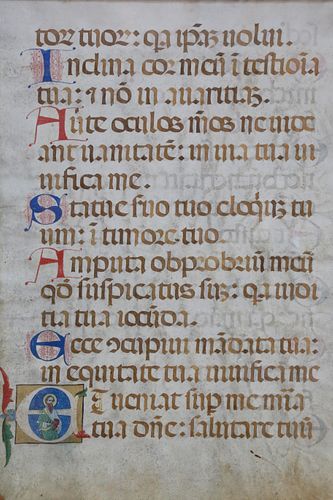 tor tuor: qa ip̄az uolui.
Inclina cor meū ī testiōīa
tua: ⁊ nō in auaritiaz.
Auīte oculos mōs ne uide
ant uanitatē: in uia tua ui
uifica me.
Statue suo tuo eloq̄uz tu
um: ī timore tuo.
Amputa obprobriū meū
qō suspicatus suz: qa iudi
tia tua iocūda.
Ecce ɔcupiui mādata tua:
in equitate tua uiuifica me
Et ueniat sup̄ me mīa
tua dn̄e: salutare tuū